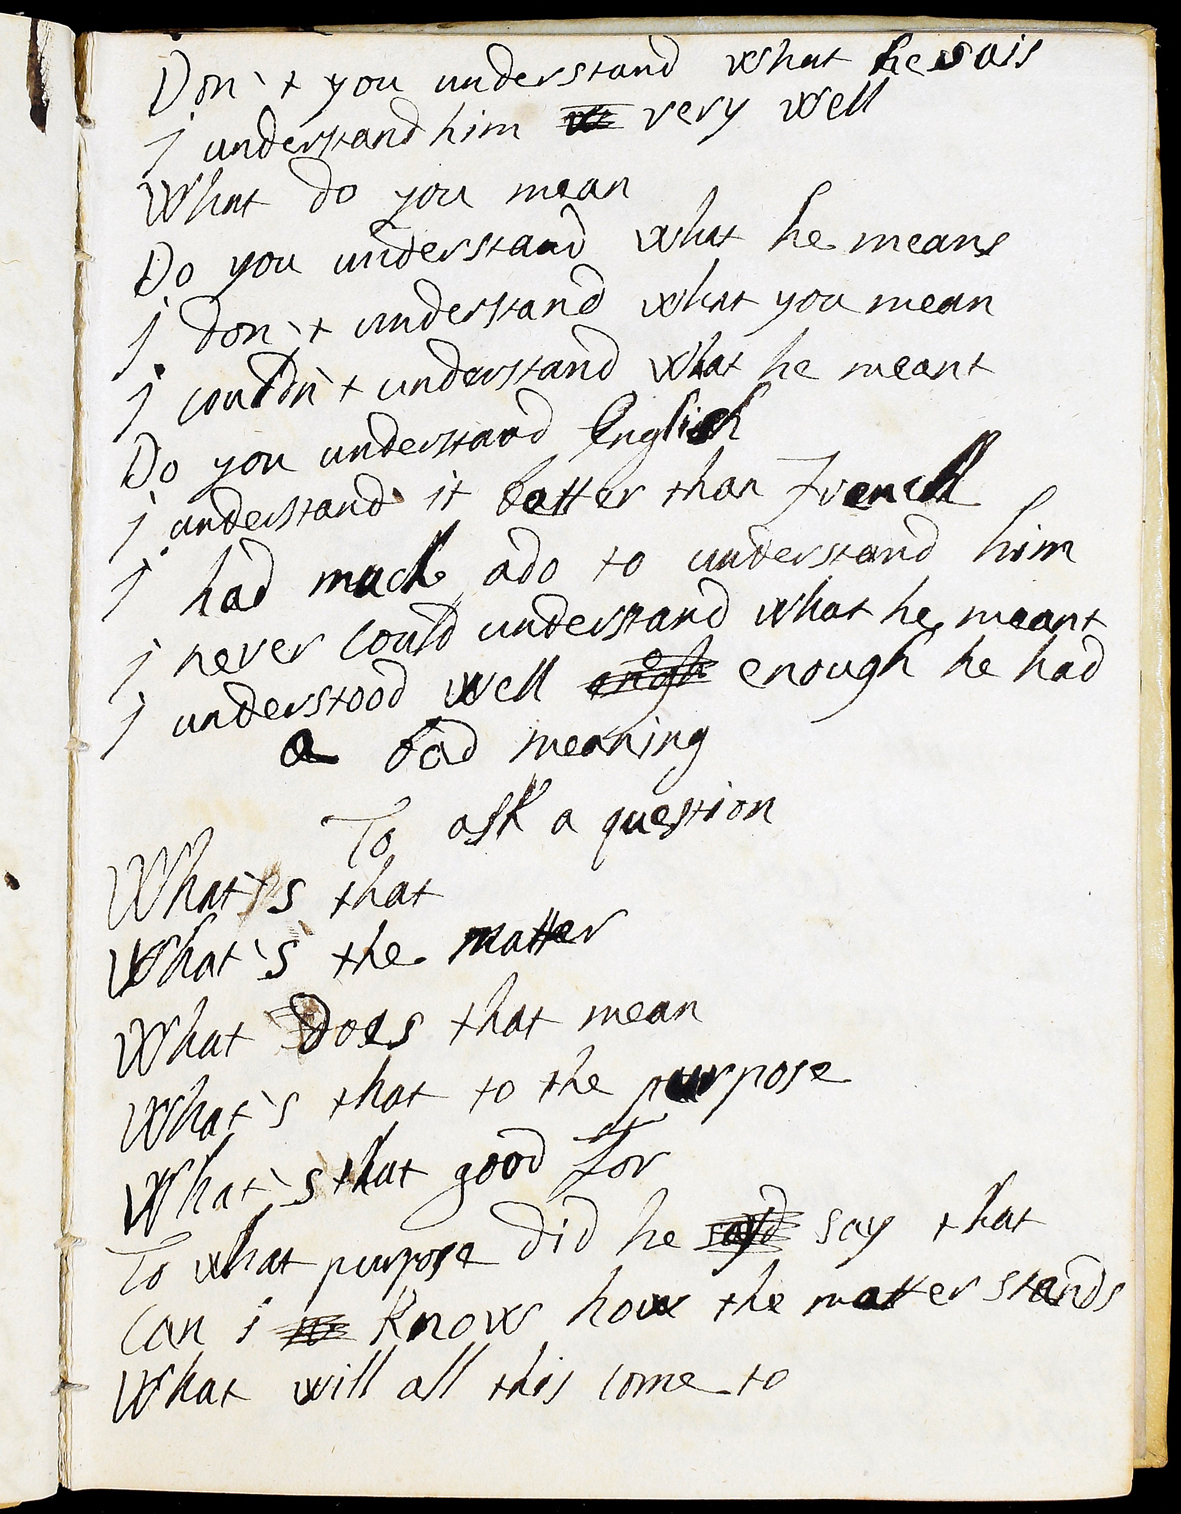 Don't you understand what he sais
j understand him very well
What do you mean
Do you understand what he means
j don't understand what you mean
j couldn't understand what he meant
Do you understand English
j understand it better than French
j had much ado to understand him
j never could understand what he meant
j understood well enough he had
a bad meaning
To ask a question
What's that
What's the matter
What does that mean
What's that to the purpose
What's that good for
To what purpose did he say that
Can i know how the matter stands
What will all this come to